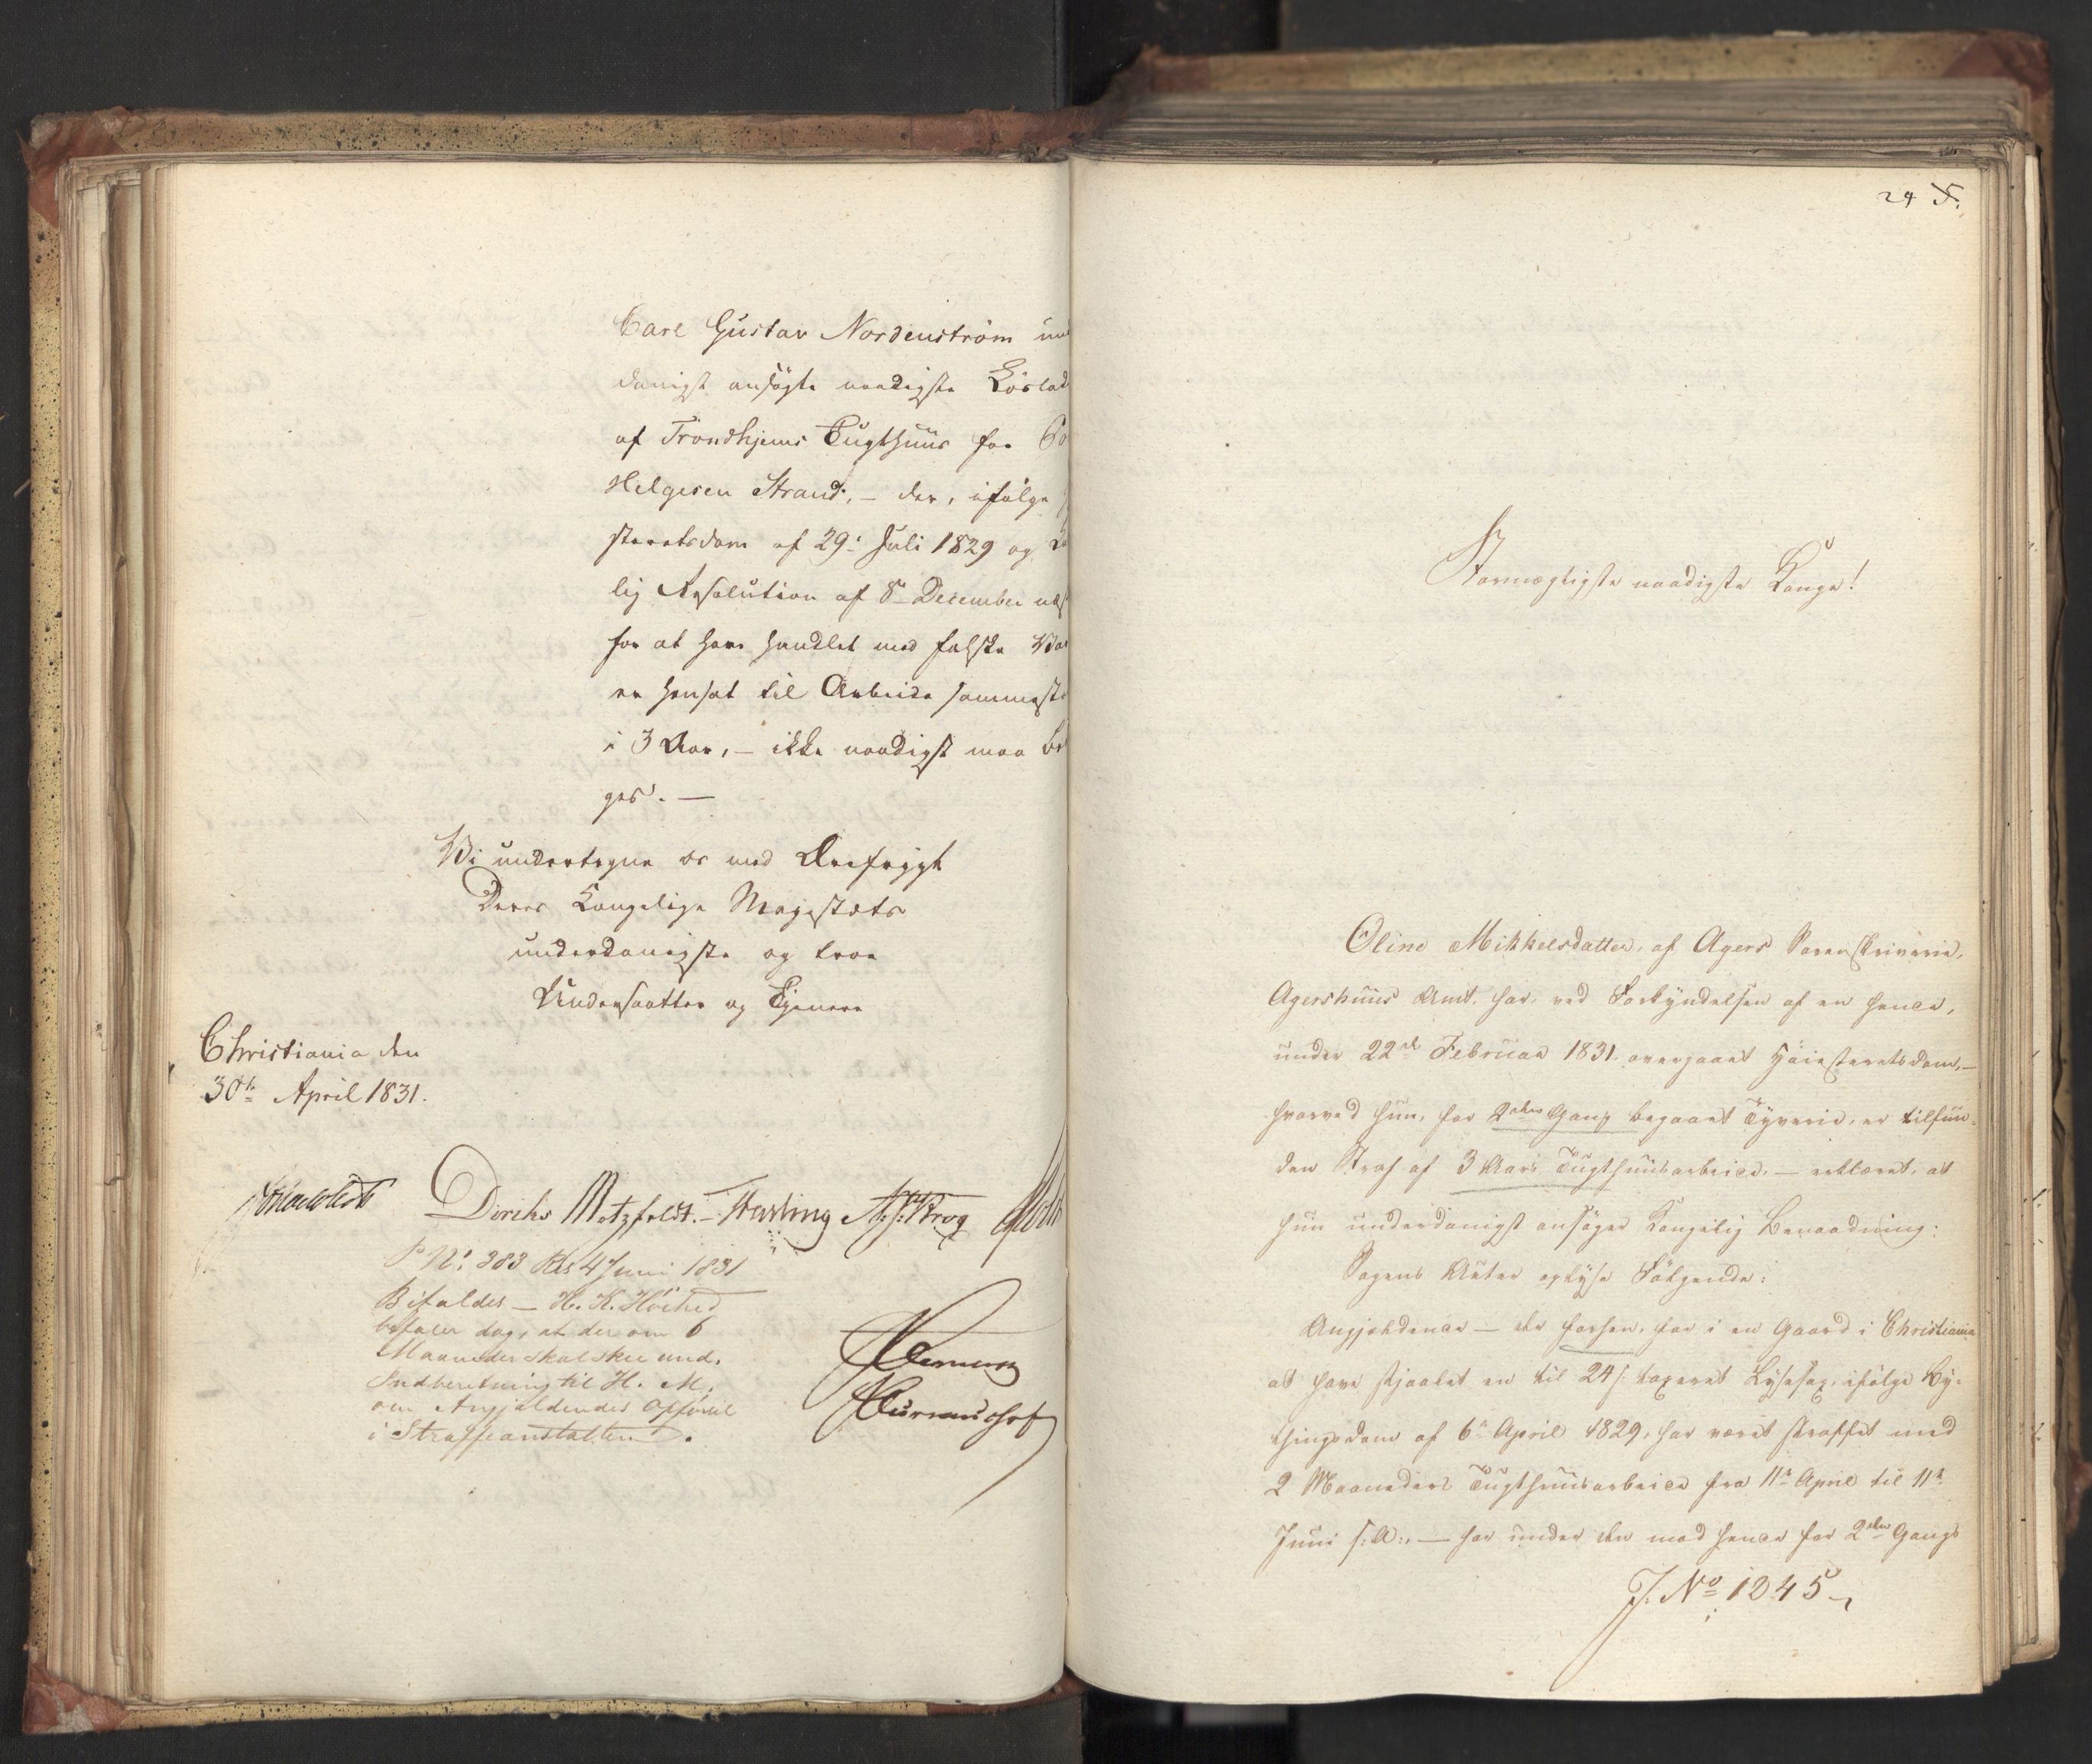 Carl Gustav Nordenström un
danigst ansøgte naadigste Løslad
af Trondhjems Tugthuus for
Helgesen Strand, – der, ifølge
steretsdom af 29. Juli 1829 og
lig Resolution af 8 December
for at have handlet med falske
er hensat til Arbeide sammeste
i 3 Aar, – ikke naadigst maa be
ges. —
Vi undertegne os med Ærefrygt
Deres Kongelige Majestæts
underdanigste og troe
Undersaatter og Tjenere
Christiania den
30te April 1831.
Diriks Motzfeldt. Krog
P No: 383 Res 4 Juni 1831
Bifaldes – H. K. Höihed
befaler dog, at der om 6
Maaneder skal skee und.
Indberetning til H. M.
om Angjældendes Opförsel
i Straffeanstalten.
24
Stormægtigste naadigste Konge!
Oline Mikkelsdatter, af Agers Sorenskriverie,
Agershuus Amt, har, ved Forkyndelsen af en hende,
under 22d Februar 1831 overgaaet Höiesteretsdom, –
hvorved hun, for 2den Gang begaaet Tyverie, er tilfun-
den Straf af 3 Aars Tugthuusarbeide, – erklæret, at
hun underdanigst ansøger Kongelig Benaadning:
Sagens Acter oplyse Følgende:
Angjeldende – der forhen, for i en Gaard i Christiania
at have stjaalet en til 24 s. taxeret Lysesax, ifølge By-
thingsdom af 6te April 1829, har været straffet med
2 Maaneders Tugthuusarbeide fra 11te April til 11te
Juni s: A:, – har under den mod hende for 2den Gangs
J. No 1245